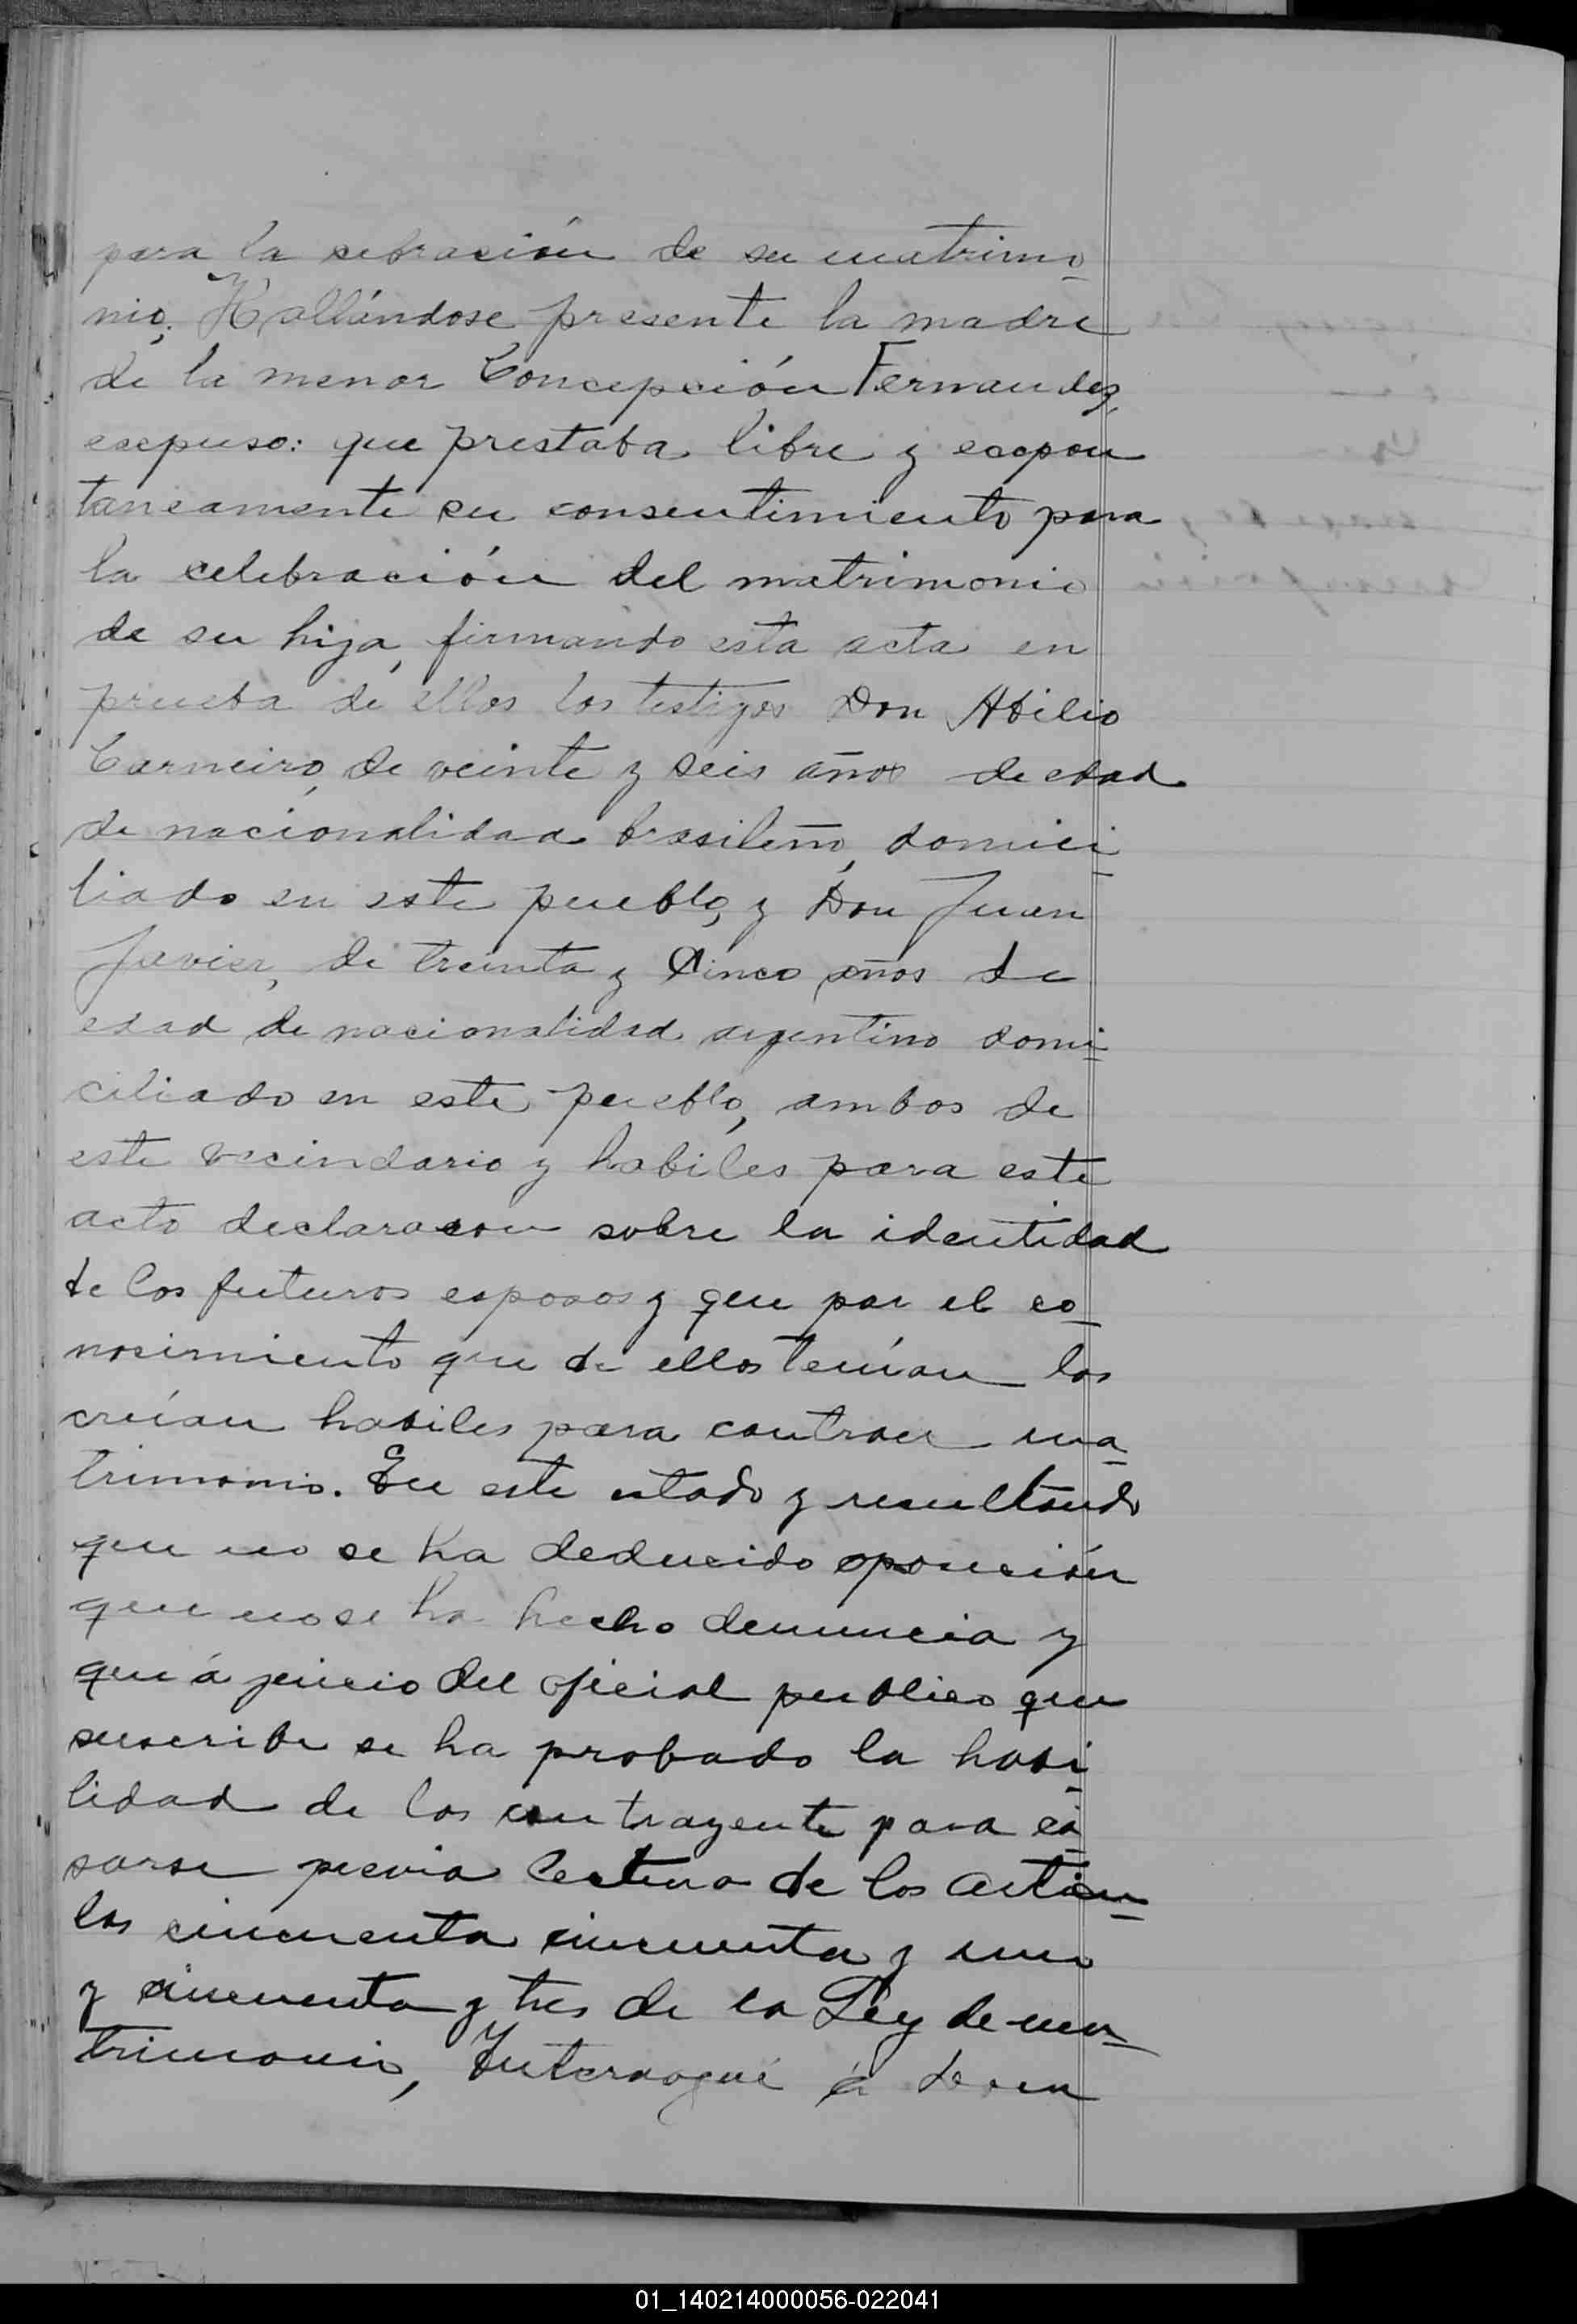 para la cebración de su matrimo
nio. Hallándose presente la madre
de la menor Concepción Fernandez,
escpuso: que prestaba libre y escpon
taneamente su consentimiento para
la celebración del matrimonio
de su hija, firmando esta acta en
prueba de ellos los testigos Don Abilio
Carneiro, de veinte y seis años de edad
de nacionalidad brasileño, domici
liado en este pueblo, y Don Juan
Javier, de treinta y cinco años de
edad de nacionalidad argentino domi
ciliado en este pueblo, ambos de
este vecindario y habiles para este
acto declararon sobre la identidad
de los futuros esposos y que por el co
nosimiento que de ellos tenían los
creían habiles para contraer ma
trimonio. En este estado y resultando
que no se ha deducido oposición
que no se ha hecho denuncia y
que á juicio del oficial publico que
suscribe se ha probado la habi
lidad de los contrayente para ca
sarse previa lectura de los articu
los cincuenta cincuenta y uno
y cincuenta y tres de la Ley de ma
trimonio, Interrogué á
01_140214000056-022041